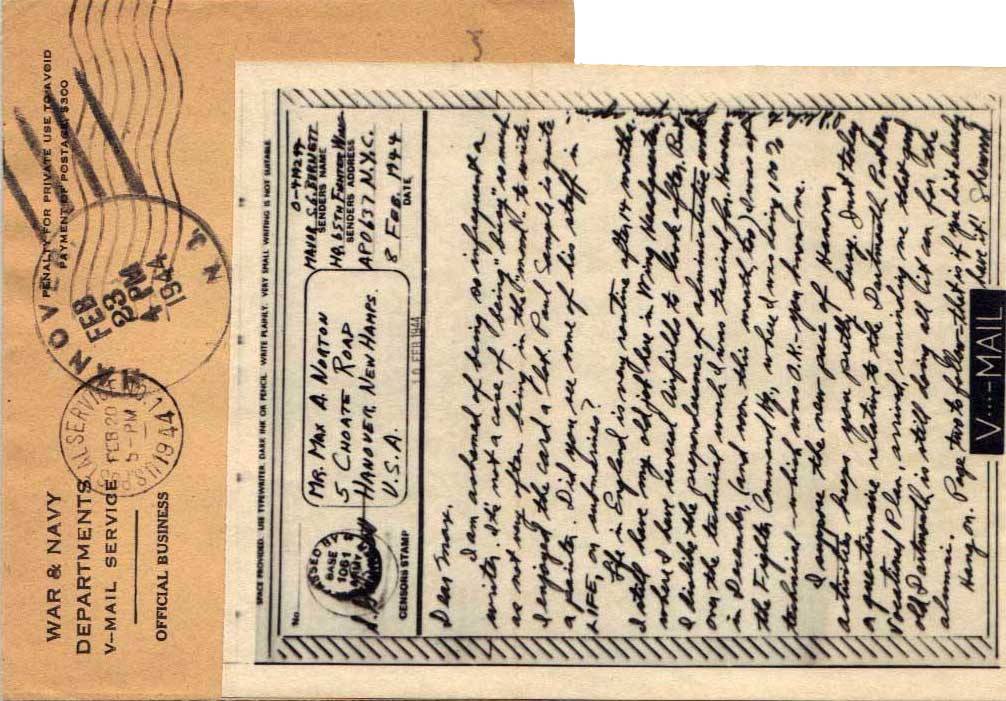 WAR & NAVY
DEPARTMENTS
V–MAIL SERVICE
OFFICIAL BUSINESS
PENALTY FOR PRIVATE USE TO AVOID
PAYMENT OF POSTAGE, $300
HANOV
FEB
23
4 PM
1944
N.
U.S. POSTAL SERVICE
FEB 20
5-PM
1944
SPACE PROVIDED. USE TYPEWRITER, DARK INK OR PENCIL. WRITE PLAINLY. VERY SMALL WRITING IS NOT SUITABLE
No.
PASSED BY
BASE
1061
ARMY
CENSOR'S STAMP
MR. MAX A. NORTON
5 CHOATE ROAD
HANOVER, NEW HAMPS.
U.S.A.
10 FEB 1944
MAJOR S. BURNETT
SENDER'S NAME
HQ. 65TH FIGHTER WING
SENDER'S ADDRESS
APO 637 N.Y.C.
8 FEB. 1944
DATE
Dear Max,
I am ashamed of being so infrequent a
writer. It is not a case of "being" "busy" so much
as not very often being in the "mood" to write.
I enjoyed the card a lot. Paul Sample is quite
a painter. Did you see some of his stuff in
LIFE, on submarines?
Life in England is very routine after 14 months.
I still have my old job here in Wing Headquarters
where I have several airfields to look after. But
I dislike the preponderance of administrative work
over the technical work I was trained for. However
in December, (and now this month too) I was at
the Fighter Command Hq. where I was doing 100%
technical – which was O.K. – you know me.
I suppose the new pace of Hanover
activities keeps you pretty busy. Just today
a questionnaire relating to the Dartmouth
Vocational Plan, arrived, reminding me that good
old Dartmouth is still doing all it can for the
alumni.
Hang on. Page two to follow – that is if you
have it! Sherwood
V···—MAIL